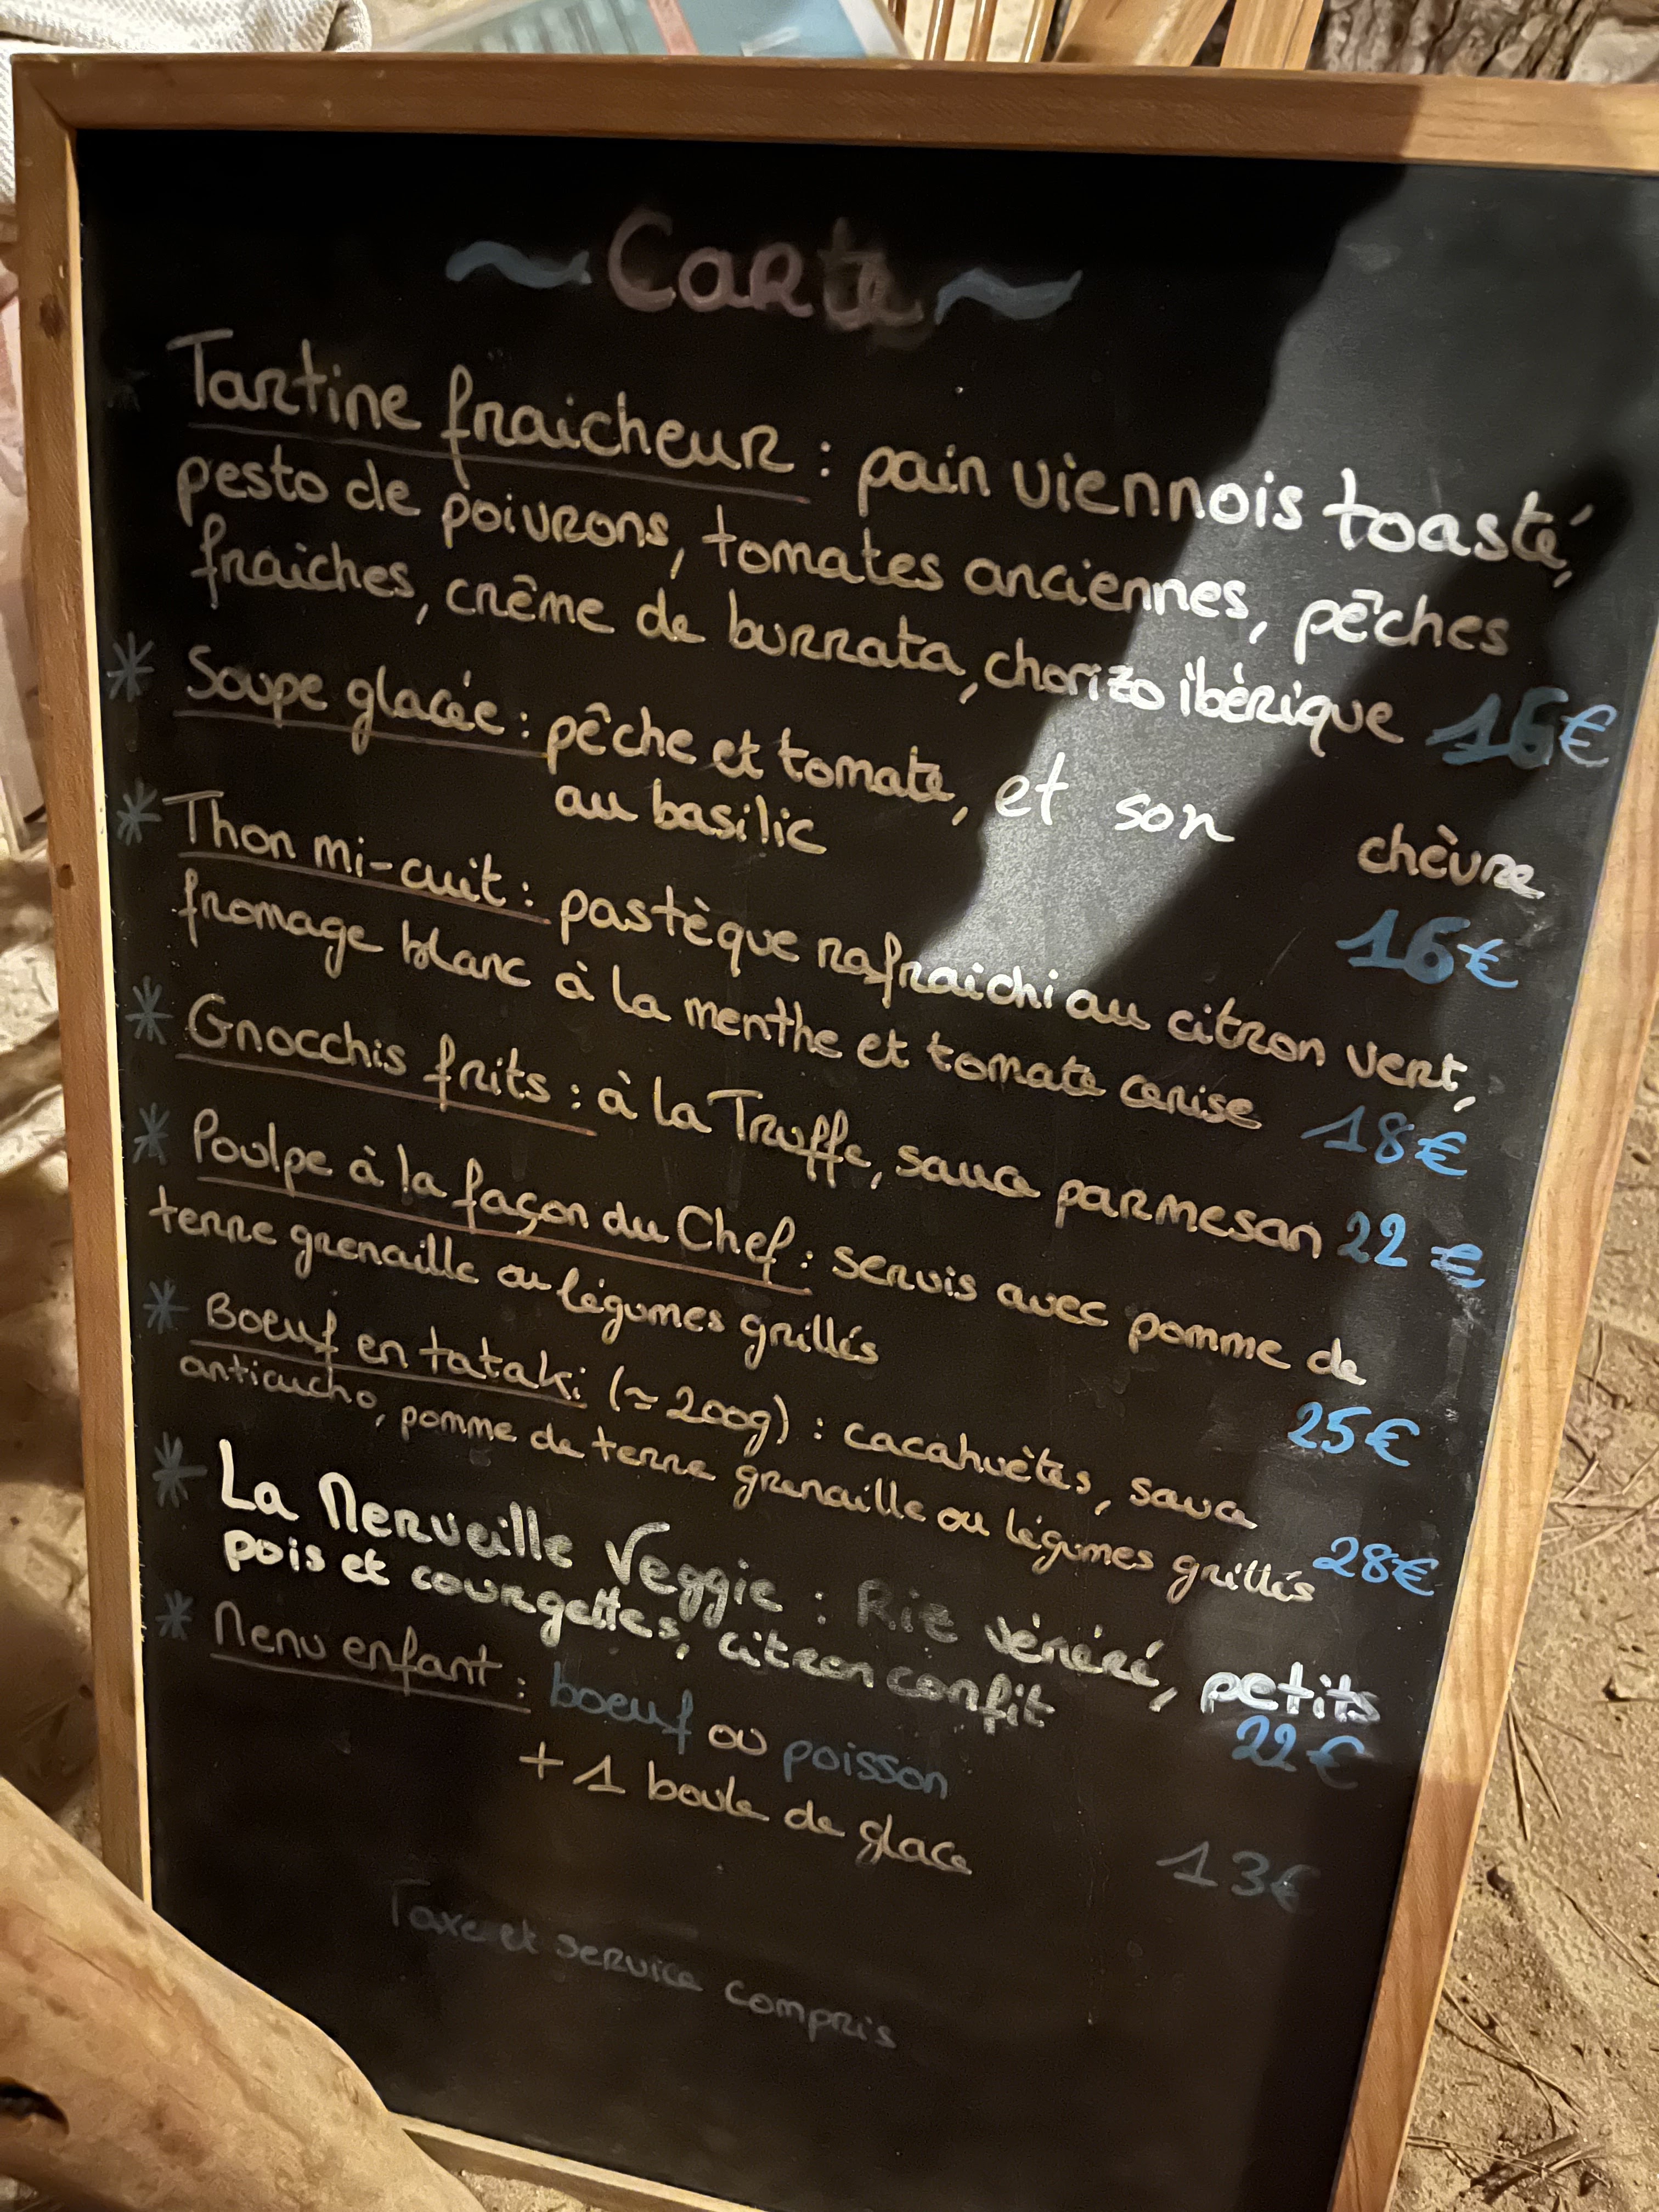 ~ Carte ~
Tartine fraicheur : pain viennois toasté,
pesto de poivrons, tomates anciennes, pêches
fraiches, crême de burrata, chorizo ibérique 16€
* Soupe glacée : pêche et tomate, et son chèvre
au basilic 16€
* Thon mi-cuit : pastèque rafraichi au citron vert,
fromage blanc à la menthe et tomate cerise 18€
* Gnocchis frits : à la Truffe, sauce parmesan 22€
* Poulpe à la façon du Chef : servis avec pomme de
terre grenaille ou légumes grillés 25€
* Boeuf en tataki (≈ 200g) : cacahuètes, sauce
anticucho, pomme de terre grenaille ou légumes grillés 28€
* La Merveille Veggie : Riz vénéré, petits
pois et courgettes, citron confit 22€
* Menu enfant : boeuf ou poisson
+ 1 boule de glace 13€
Taxe et service compris